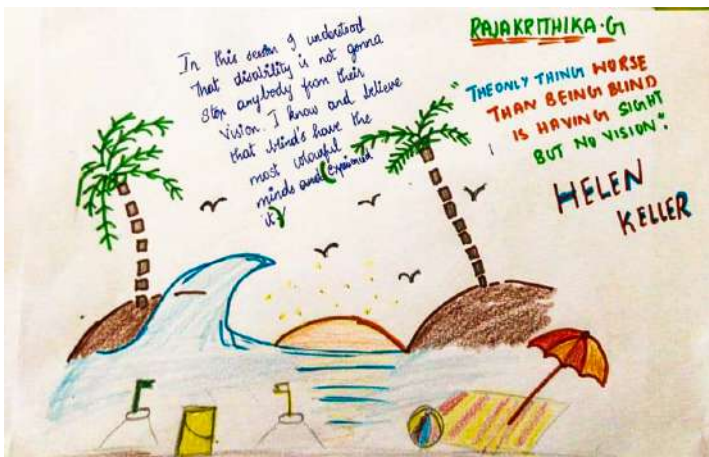 In this session I understood
that disability is not gonna
stop anybody from their
vision. I know and believe
that blind's have the
most colourful
minds and (Experienced
it)
RAJAKRITHIKA·G
"THE ONLY THING WORSE
THAN BEING BLIND
IS HAVING SIGHT
BUT NO VISION".
HELEN
KELLER